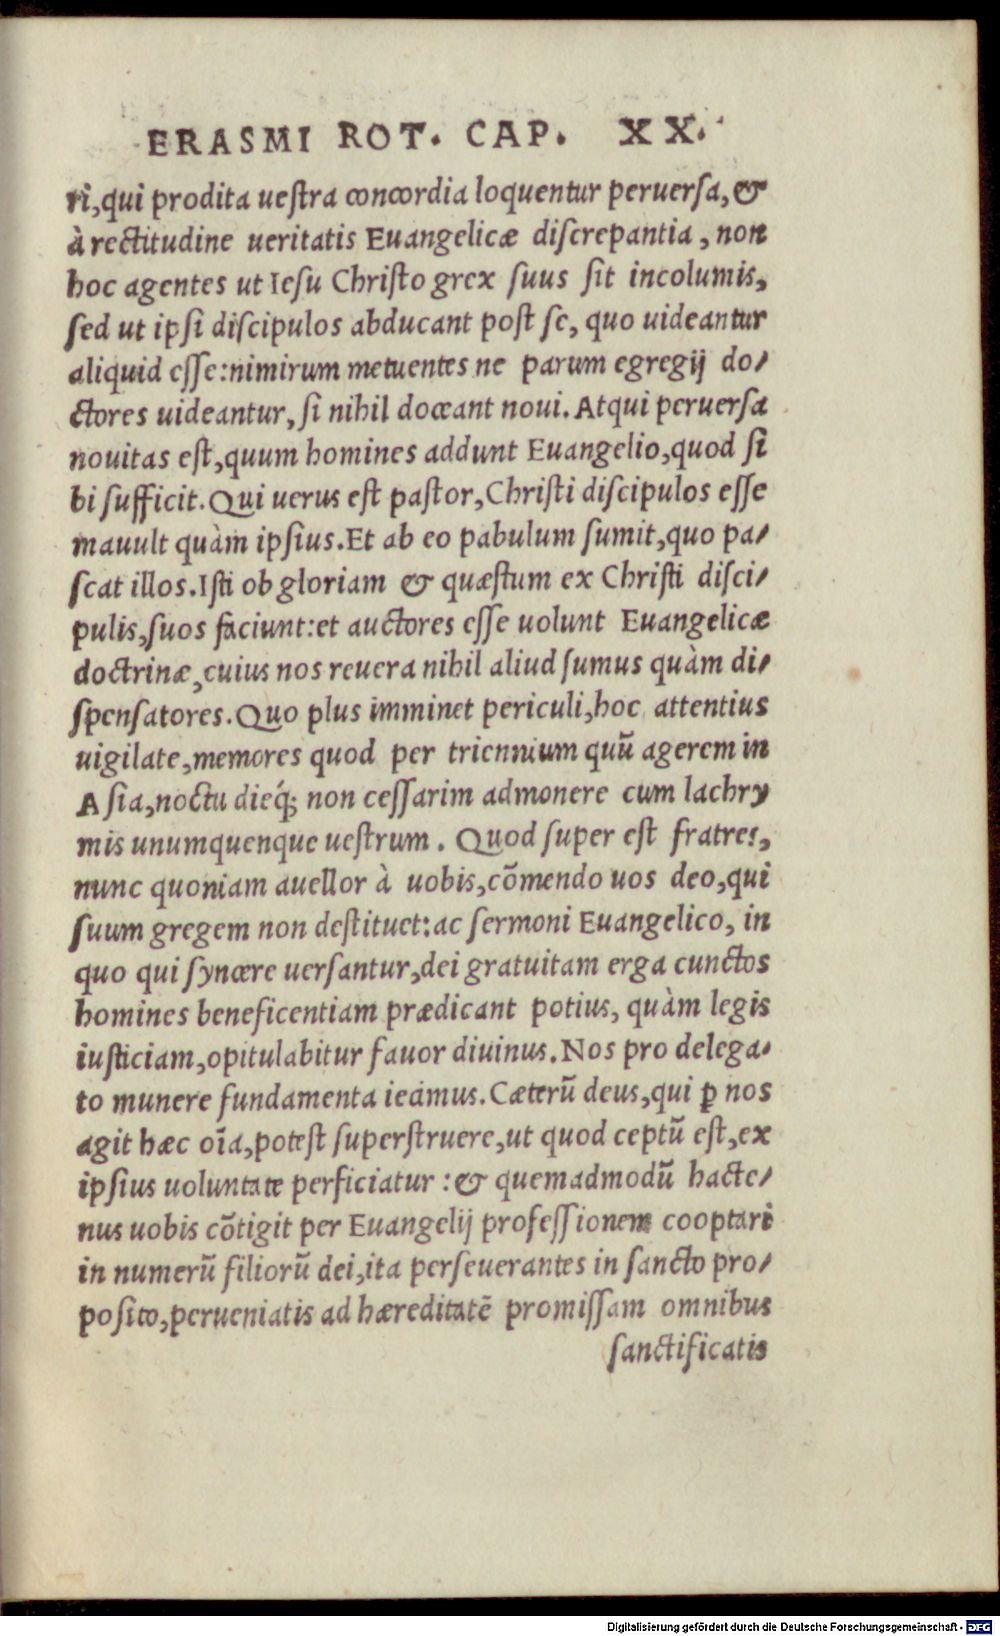 ERASMI ROT. CAP. XX.
ri,qui prodita uestra concordia loquentur peruersa,&
à rectitudine ueritatis Euangelicæ discrepantia, non
hoc agentes ut Iesu Christo grex suus sit incolumis,
sed ut ipsi discipulos abducant post se, quo uideantur
aliquid esse:nimirum metuentes ne parum egregij do/
ctores uideantur, si nihil doceant noui. Atqui peruersa
nouitas est,quum homines addunt Euangelio,quod si
bi sufficit. Qui uerus est pastor,Christi discipulos esse
mauult quàm ipsius.Et ab eo pabulum sumit,quo pa/
scat illos. Isti ob gloriam & quæstum ex Christi disci/
pulis,suos faciunt:et auctores esse uolunt Euangelicæ
doctrinæ,cuius nos reuera nihil aliud sumus quàm di/
spensatores. Quo plus imminet periculi,hoc attentius
uigilate,memores quod per triennium quū agerem in
Asia,noctu dieq́; non cessarim admonere cum lachry
mis unumquenque uestrum. Quod super est fratres,
nunc quoniam auellor à uobis,cōmendo uos deo,qui
suum gregem non destituet:ac sermoni Euangelico, in
quo qui syncere uersantur,dei gratuitam erga cunctos
homines beneficentiam prædicant potius, quàm legis
iusticiam,opitulabitur fauor diuinus. Nos pro delega/
to munere fundamenta iecimus. Cæterū deus,qui ꝑ nos
agit hæc oīa,potest superstruere,ut quod ceptū est,ex
ipsius uoluntate perficiatur:& quemadmodū hacte/
nus uobis cōtigit per Euangelij professionem cooptari
in numerū filiorū dei,ita perseuerantes in sancto pro/
posito,perueniatis ad hæreditatē promissam omnibus
sanctificatis
Digitalisierung gefördert durch die Deutsche Forschungsgemeinschaft - DFG